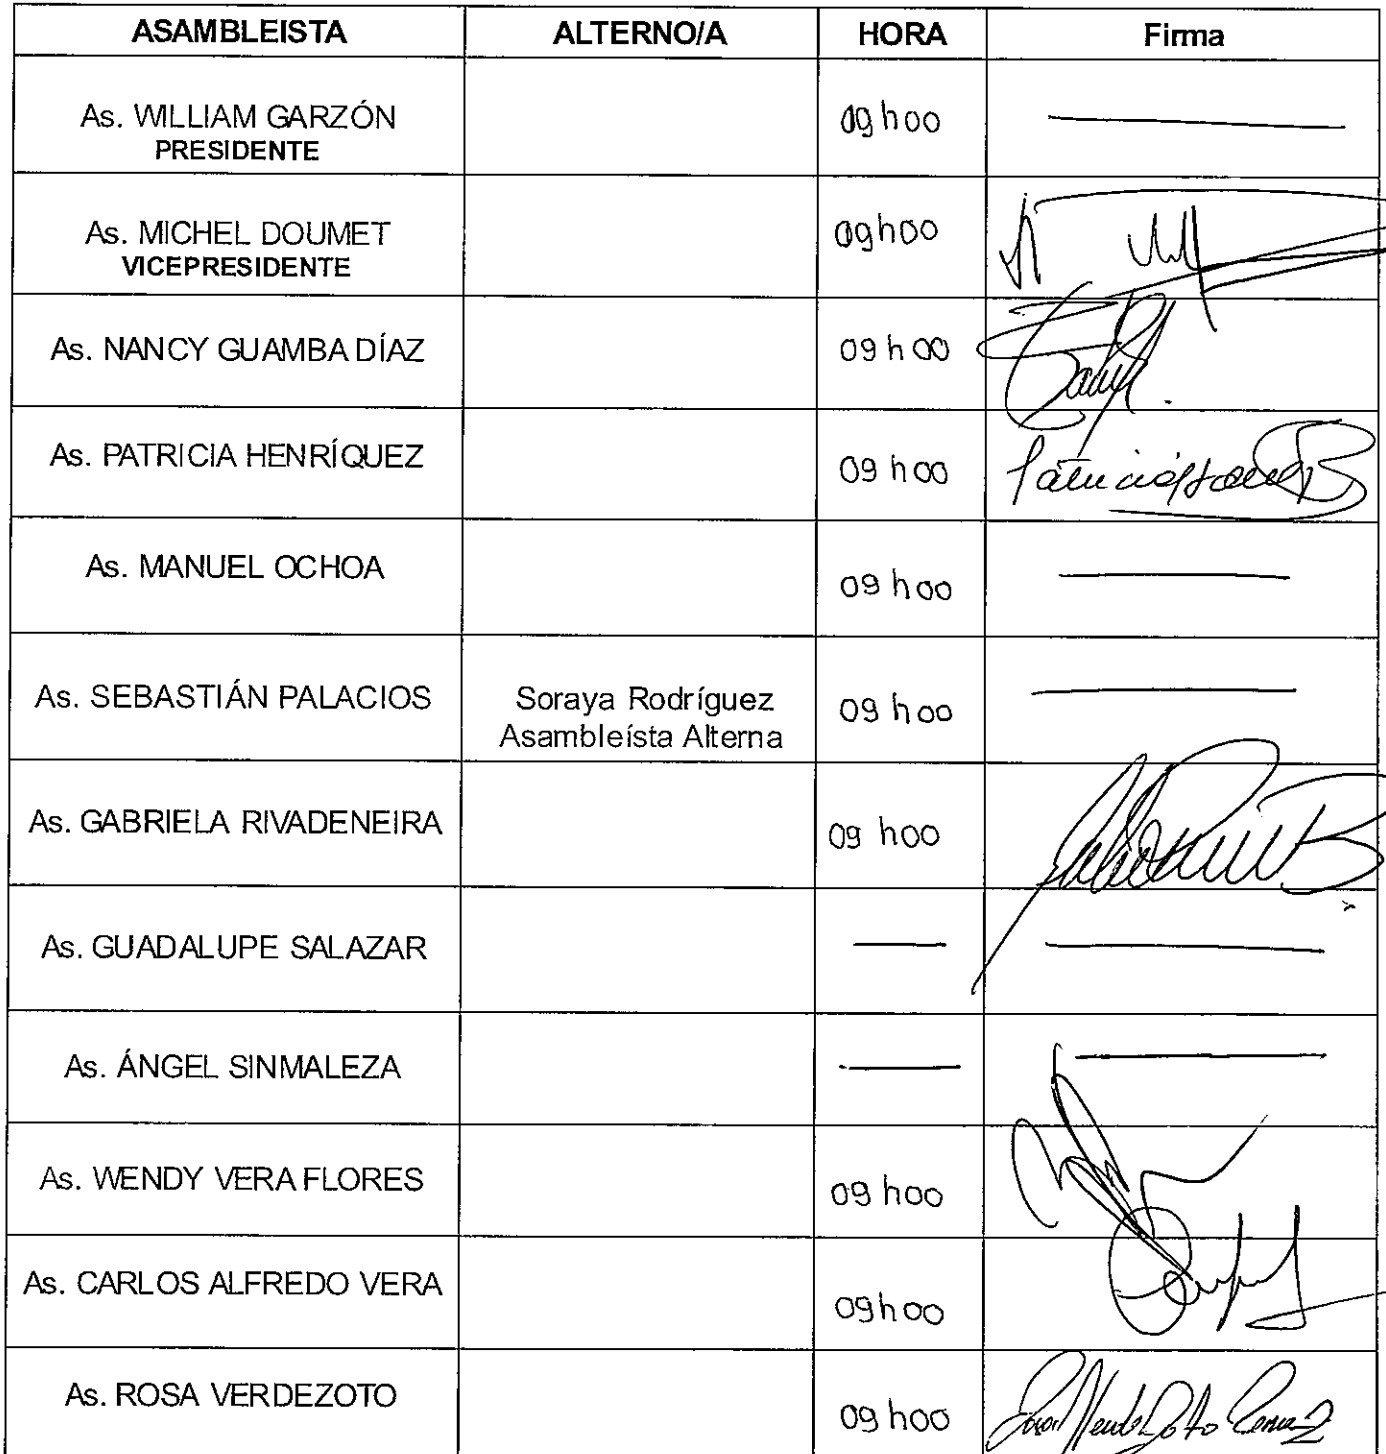 ASAMBLEISTA ALTERNO/A HORA Firma
As. WILLIAM GARZÓN 09h00
PRESIDENTE
As. MICHEL DOUMET 09h00
VICEPRESIDENTE
As. NANCY GUAMBA DÍAZ 09h00
As. PATRICIA HENRÍQUEZ 09h00
As. MANUEL OCHOA 09h00
As. SEBASTIÁN PALACIOS Soraya Rodríguez 09h00
Asambleísta Alterna
As. GABRIELA RIVADENEIRA 09h00
As. GUADALUPE SALAZAR
As. ÁNGEL SINMALEZA
As. WENDY VERA FLORES 09h00
As. CARLOS ALFREDO VERA 09h00
As. ROSA VERDEZOTO 09h00